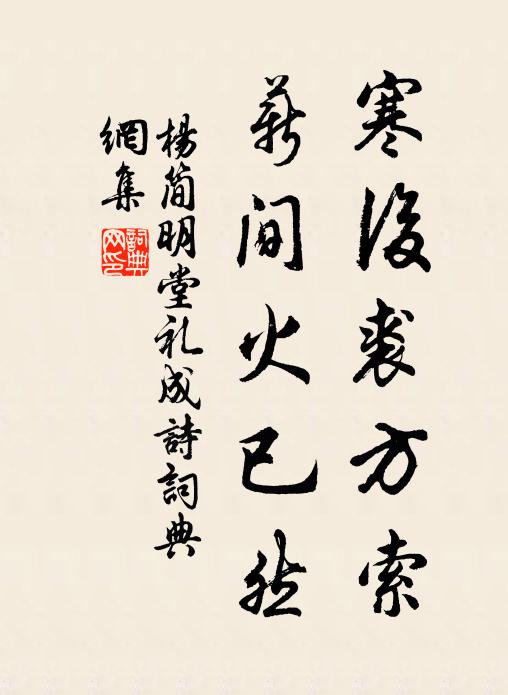 寒後裘方索
薪间火已然
楊简明堂礼成詩詞典
網集
詞典
网印